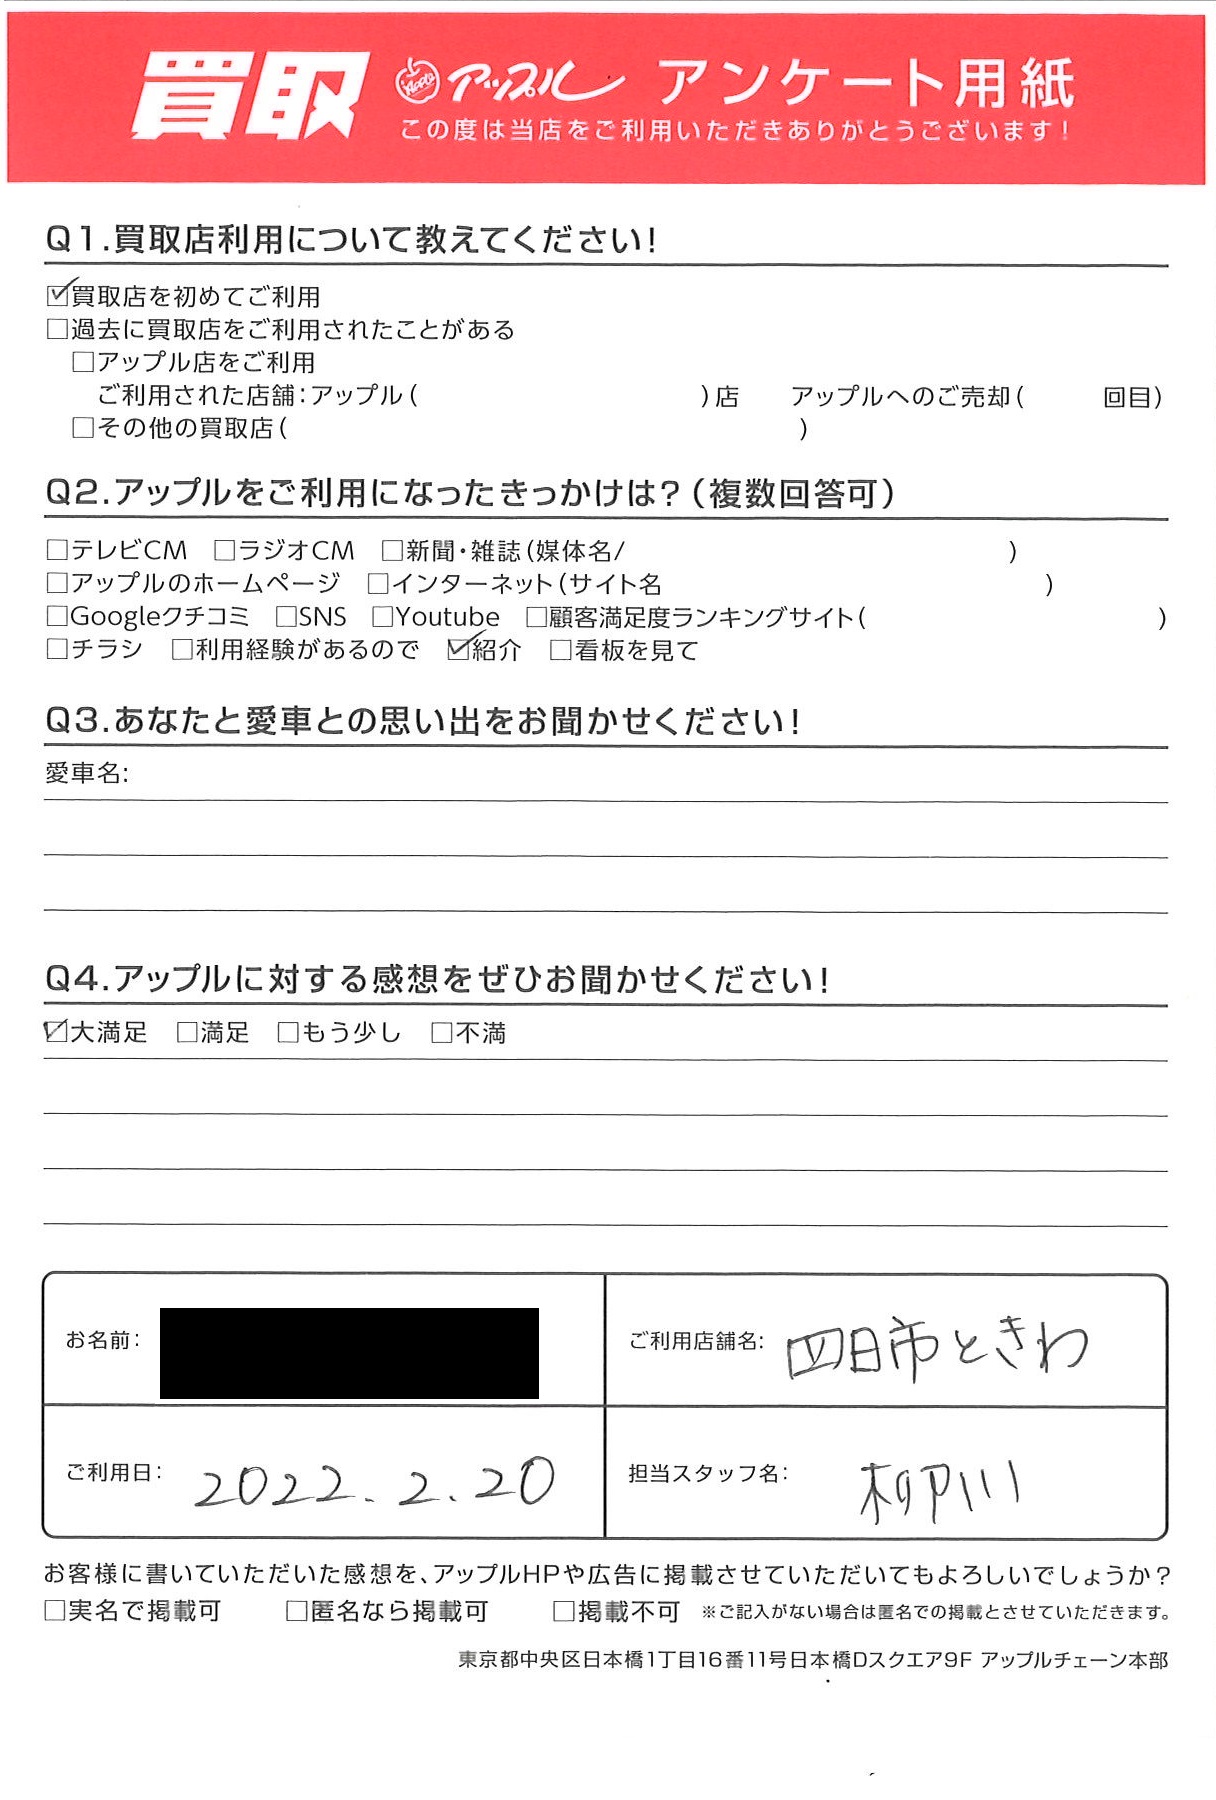 買取 Apple アップル アンケート用紙
この度は当店をご利用いただきありがとうございます!
Q1.買取店利用について教えてください!
☑買取店を初めてご利用
□過去に買取店をご利用されたことがある
□アップル店をご利用
ご利用された店舗:アップル( )店 アップルへのご売却( 回目)
□その他の買取店( )
Q2.アップルをご利用になったきっかけは?(複数回答可)
□テレビCM □ラジオCM □新聞・雑誌(媒体名/ )
□アップルのホームページ □インターネット(サイト名 )
□Googleクチコミ □SNS □Youtube □顧客満足度ランキングサイト( )
□チラシ □利用経験があるので ☑紹介 □看板を見て
Q3.あなたと愛車との思い出をお聞かせください!
愛車名:
Q4.アップルに対する感想をぜひお聞かせください!
☑大満足 □満足 □もう少し □不満
お名前: ご利用店舗名: 四日市ときわ
ご利用日: 2022.2.20 担当スタッフ名: 柳川
お客様に書いていただいた感想を、アップルHPや広告に掲載させていただいてもよろしいでしょうか?
□実名で掲載可 □匿名なら掲載可 □掲載不可 ※ご記入がない場合は匿名での掲載とさせていただきます。
東京都中央区日本橋1丁目16番11号日本橋Dスクエア9F アップルチェーン本部